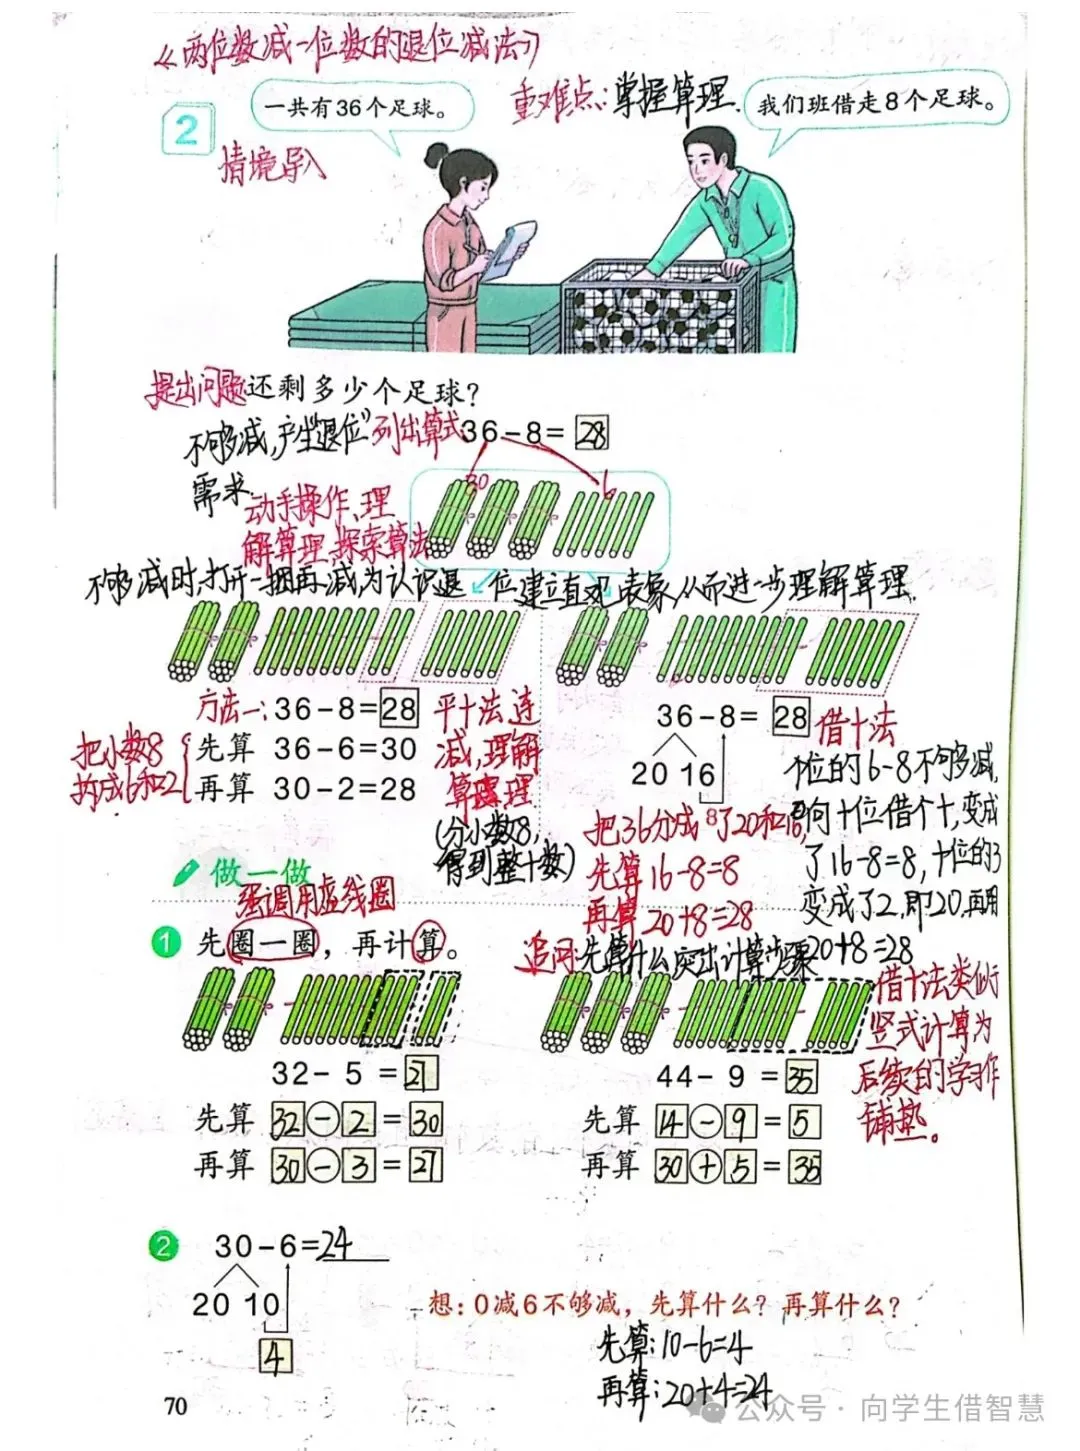 《两位数减一位数的退位减法》
重难点：掌握算理.
2
一共有36个足球。
我们班借走8个足球。
情境导入
提出问题还剩多少个足球？
不够减,产生"退位"需求
列出算式
36－8＝28
30
6
动手操作、理
解算理、探索算法
不够减时,打开一捆再减,为认识退位建立直观表象,从而进一步理解算理.
方法一：36－8＝28
平十法 连
减,理解
算理
把小数8
构成6和2
先算 36－6＝30
再算 30－2＝28
(分小数8,
得到整十数)
36－8＝28
借十法
20 16
8
把36分成了20和16,
先算16-8=8
再算20+8=28
个位的6-8不够减,
向十位借个十,变成
了16-8=8,十位的3
变成了2.即20.再用
20+8=28
做一做
强调用虚线圈
1 先圈一圈，再计算。
追问:先算什么突出计算步骤
32－5＝27
先算 32－2＝30
再算 30－3＝27
44－9＝35
先算 14－9＝5
再算 30＋5＝35
借十法类似
竖式计算为
后续的学习作
铺垫。
2 30－6＝24
20 10
4
想：0减6不够减，先算什么？再算什么？
先算:10-6=4
再算:20+4=24
70
公众号·向学生借智慧